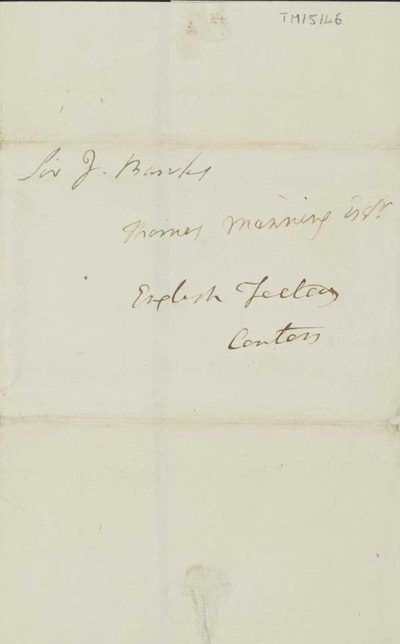 TM/5/46
Sir J. Banks
Thomas Manning Esqr.
English Factory
Canton